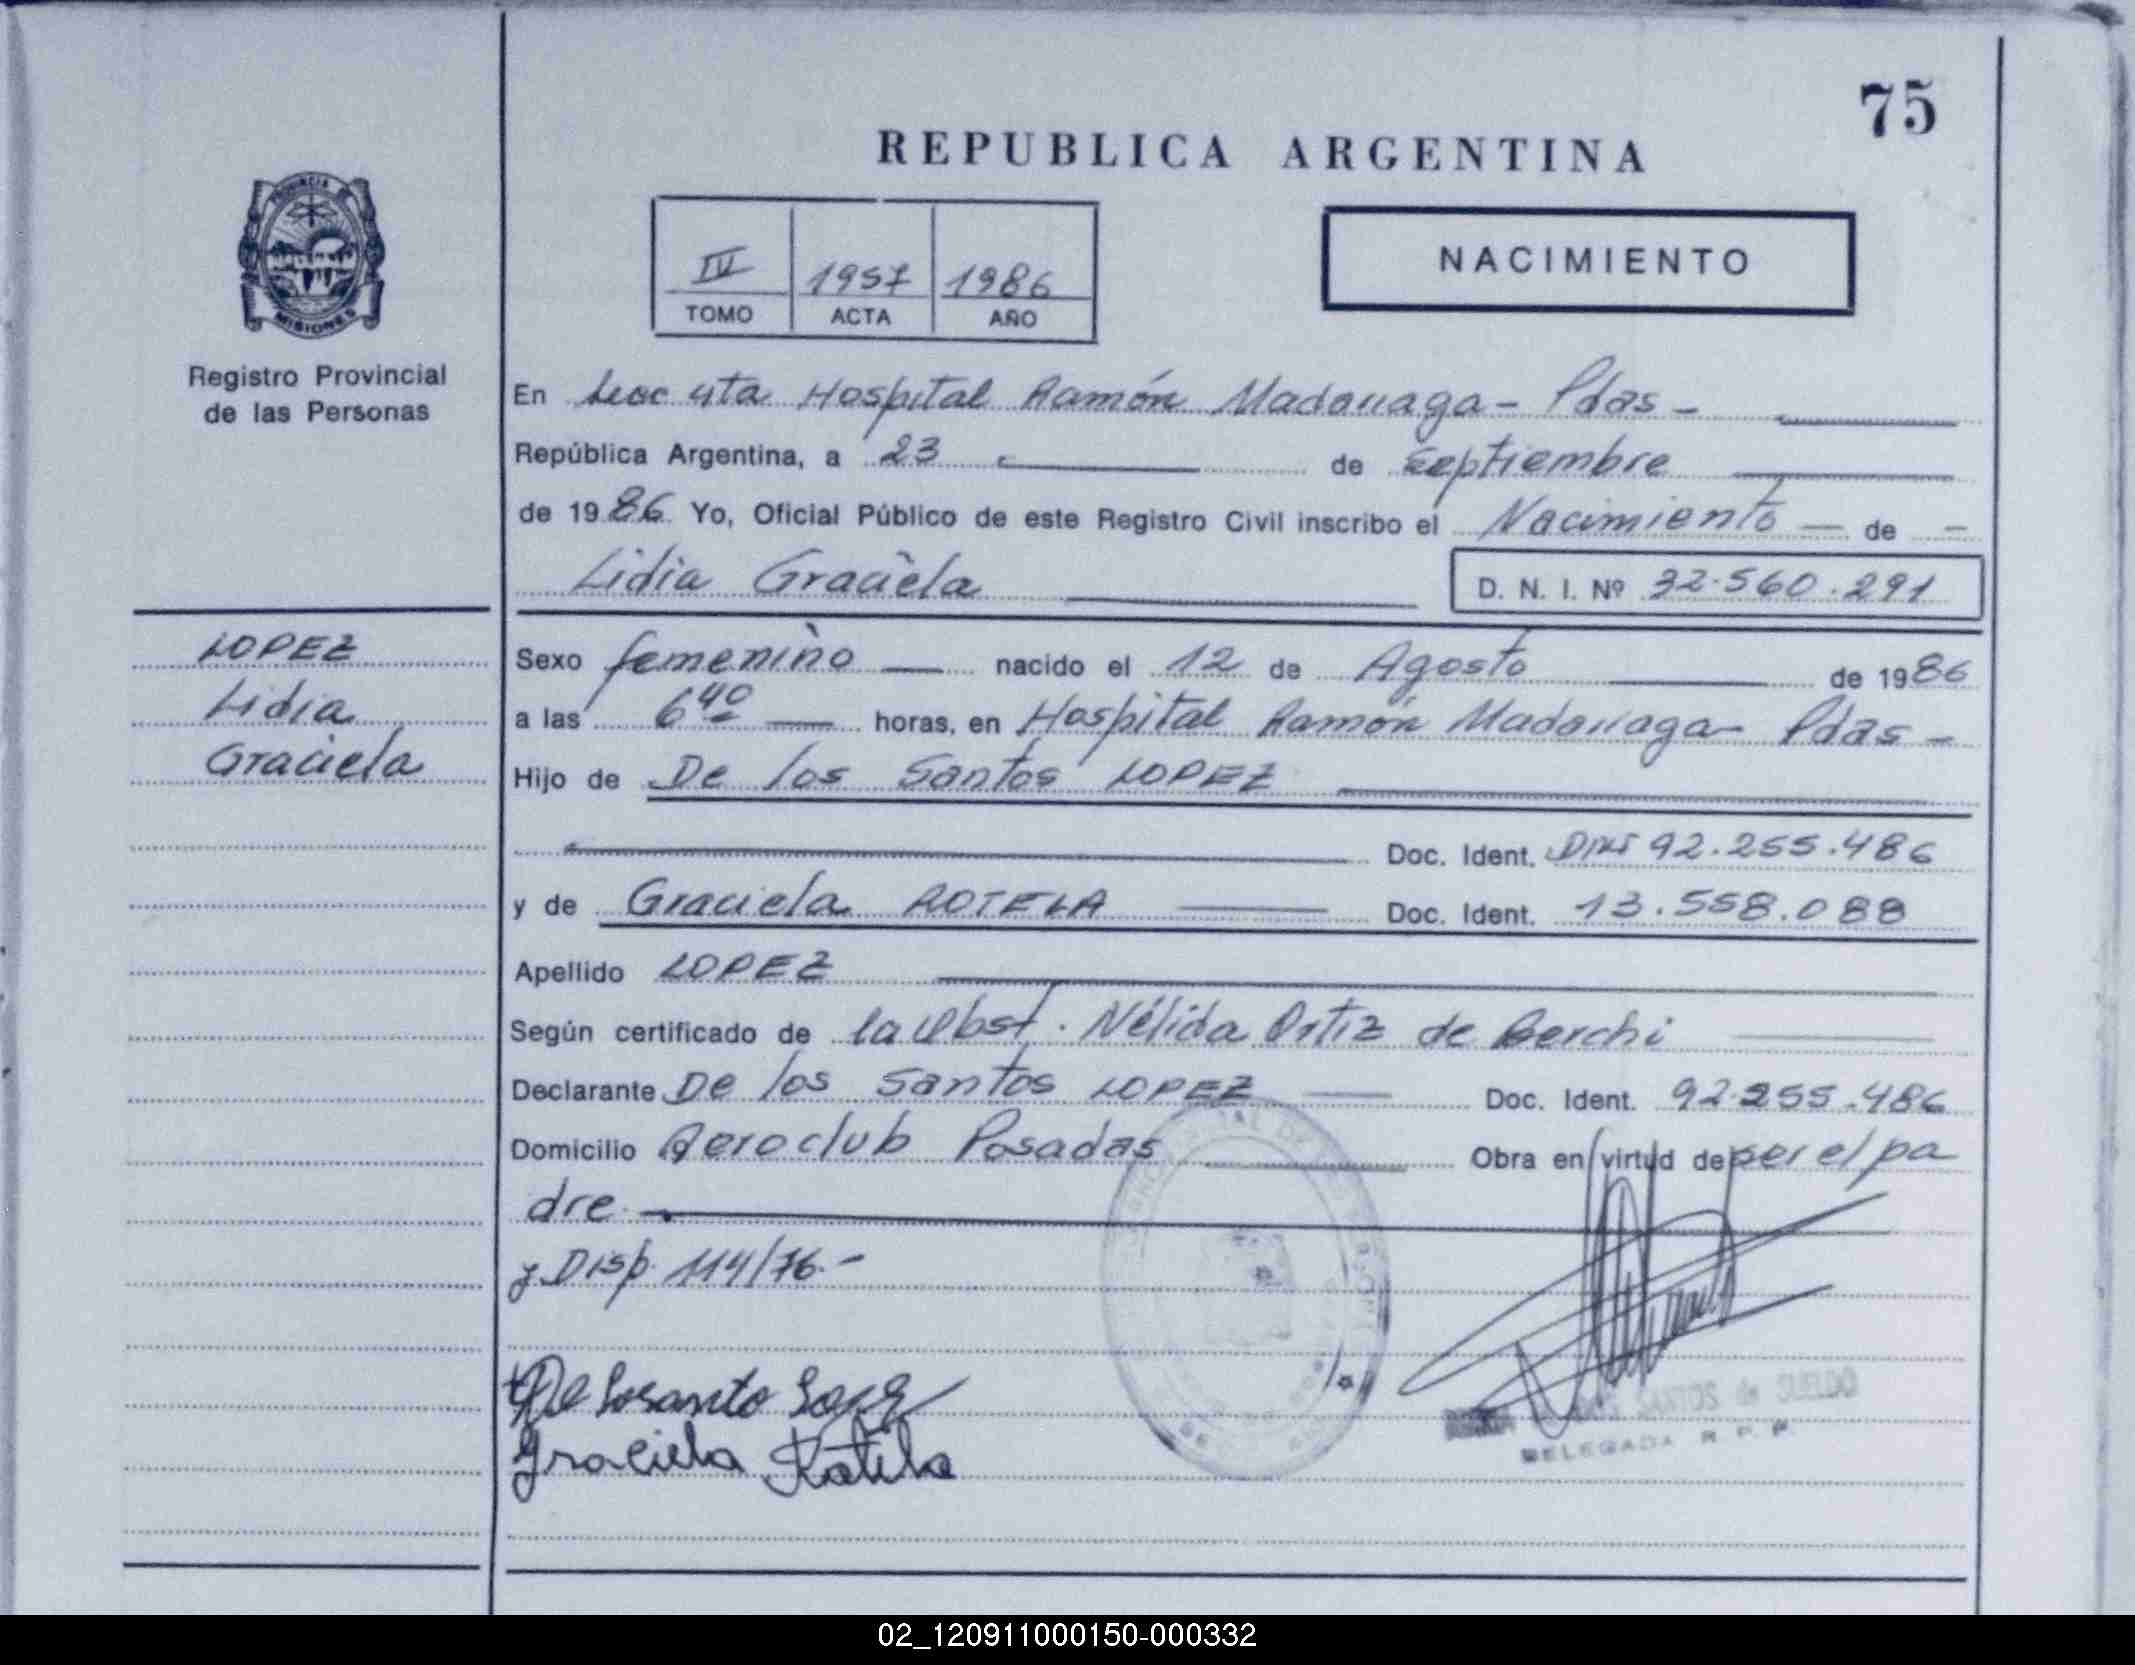 75
REPUBLICA ARGENTINA
PROVINCIA DE
MISIONES
Registro Provincial
de las Personas
IV 1957 1986
TOMO ACTA AÑO
NACIMIENTO
En Secc 4ta Hospital Ramón Madariaga - Pdas -
República Argentina, a 23 de Septiembre
de 1986 Yo, Oficial Público de este Registro Civil inscribo el Nacimiento — de -
Lidia Graciela D. N. I. Nº 32.560.291
LOPEZ
Lidia
Graciela
Sexo femenino — nacido el 12 de Agosto de 1986
a las 6 40 — horas, en Hospital Ramón Madariaga - Pdas -
Hijo de De los Santos LOPEZ
Doc. Ident. DNI 92.255.486
y de Graciela ROTELA Doc. Ident. 13.558.088
Apellido LOPEZ
Según certificado de la Obst. Nélida Ortiz de Berchi
Declarante De los Santos LOPEZ — Doc. Ident. 92.255.486
Domicilio Aeroclub Posadas Obra en virtud de ser el pa
dre
y Disp. 114/76.-
De losanto Lopez
Graciela Rotela
SANTOS de SUELDO
DELEGADA R. P. P.
02_120911000150-000332